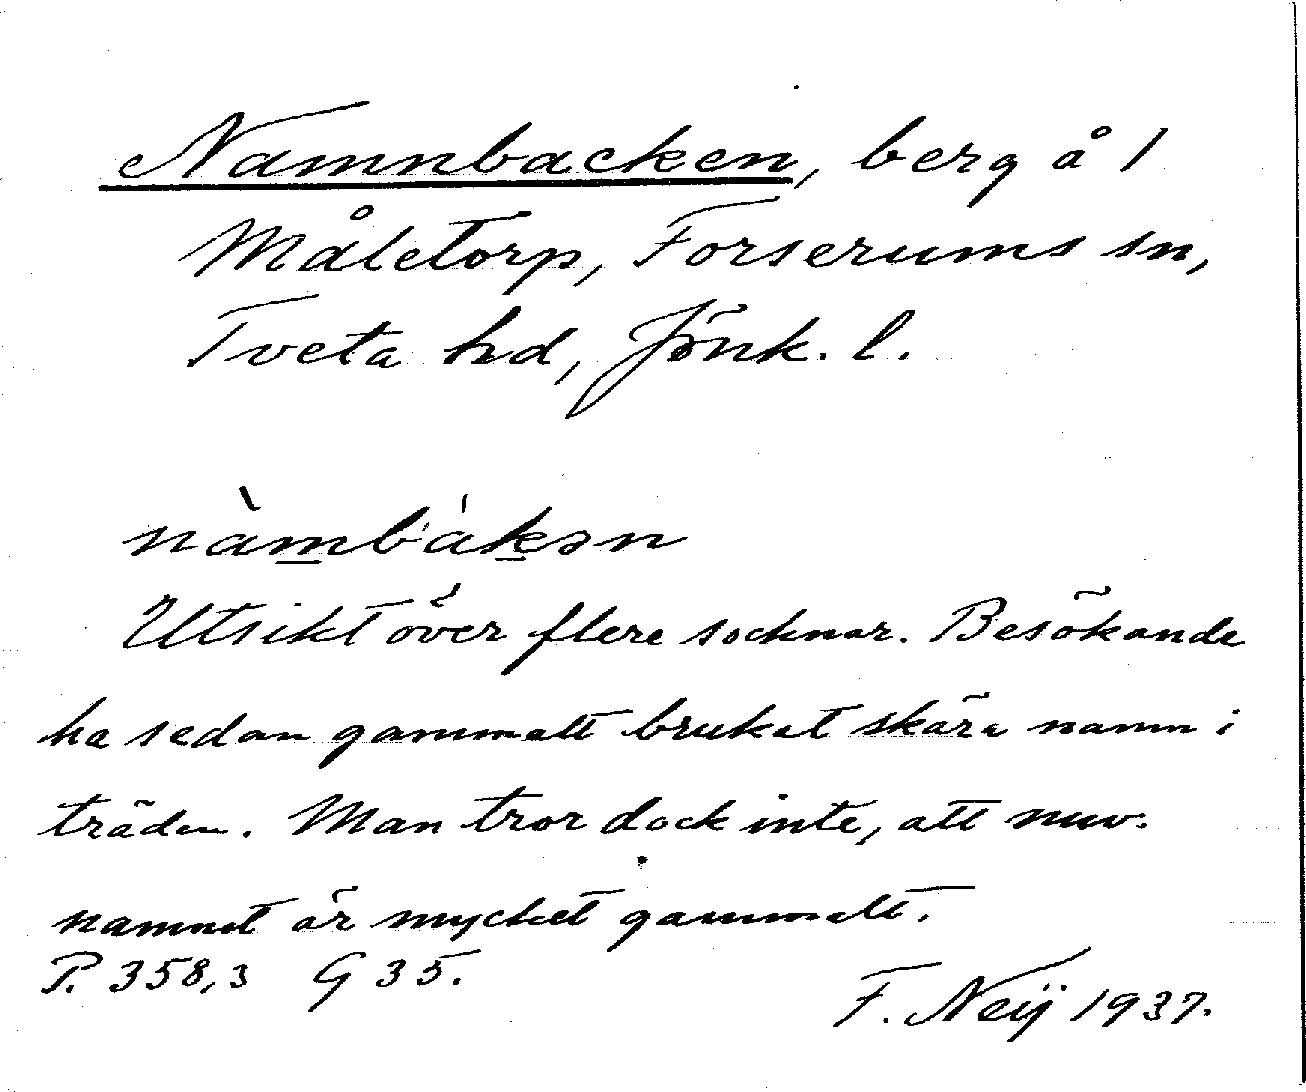 Namnbacken, berg å 1
Måletorp, Forserums sn,
Tveta hd, Jönk. l.
nàmbákən
Utsikt över flere socknar. Besökande
ha sedan gammalt brukat skära namn i
träden. Man tror dock inte, att nuv.
namnet är mycket gammalt.
P. 358,3 G 35.
F. Neij 1937.